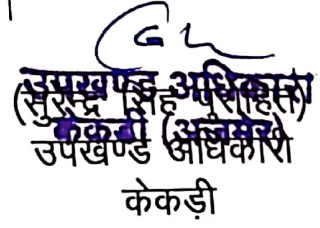 उपखण्ड अधिकारी
(सुरेन्द्र सिंह पुरोहित)
केकड़ी (अजमेर)
उपखण्ड अधिकारी
केकड़ी